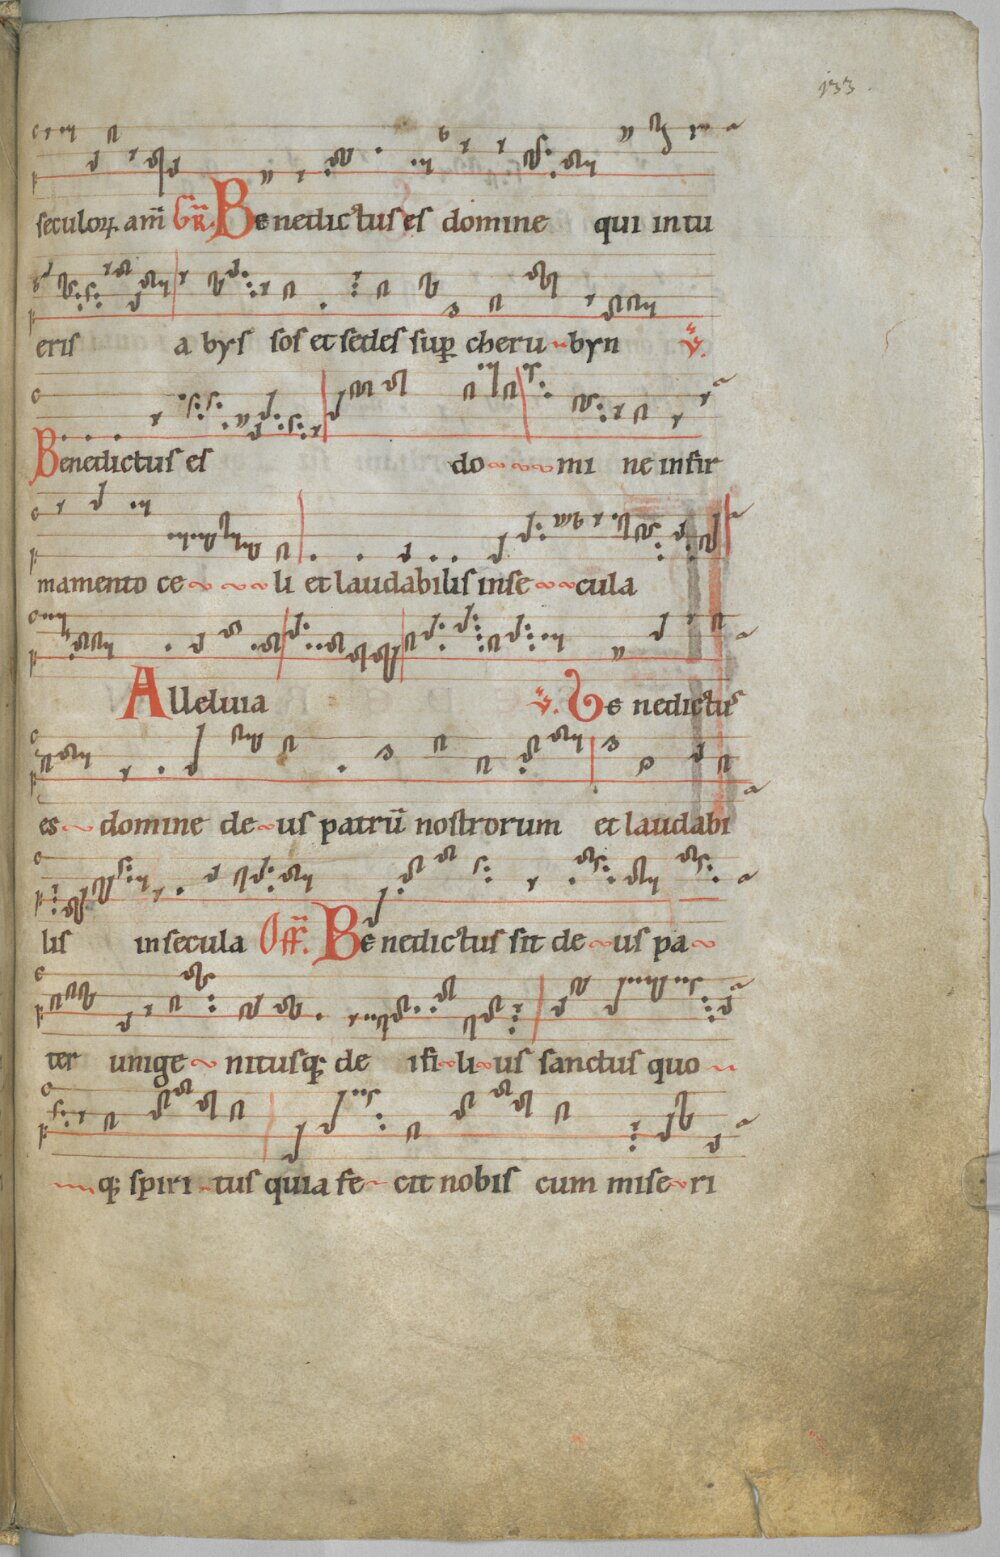 133
seculoꝝ. am̄ Gr̄. Benedictus es domine qui intu
eris abyssos et sedes sup̱ cherubyn ℣.
Benedictus es domi ne infir
mamento celi et laudabilis insecula
Alleluia ℣. Benedictus
es domine deus patrū nostrorum et laudabi
lis insecula Off̄. Benedictus sit deus pa
ter unigenitusq; dei filius sanctus quo
q; spiritus quia fecit nobis cum miseri